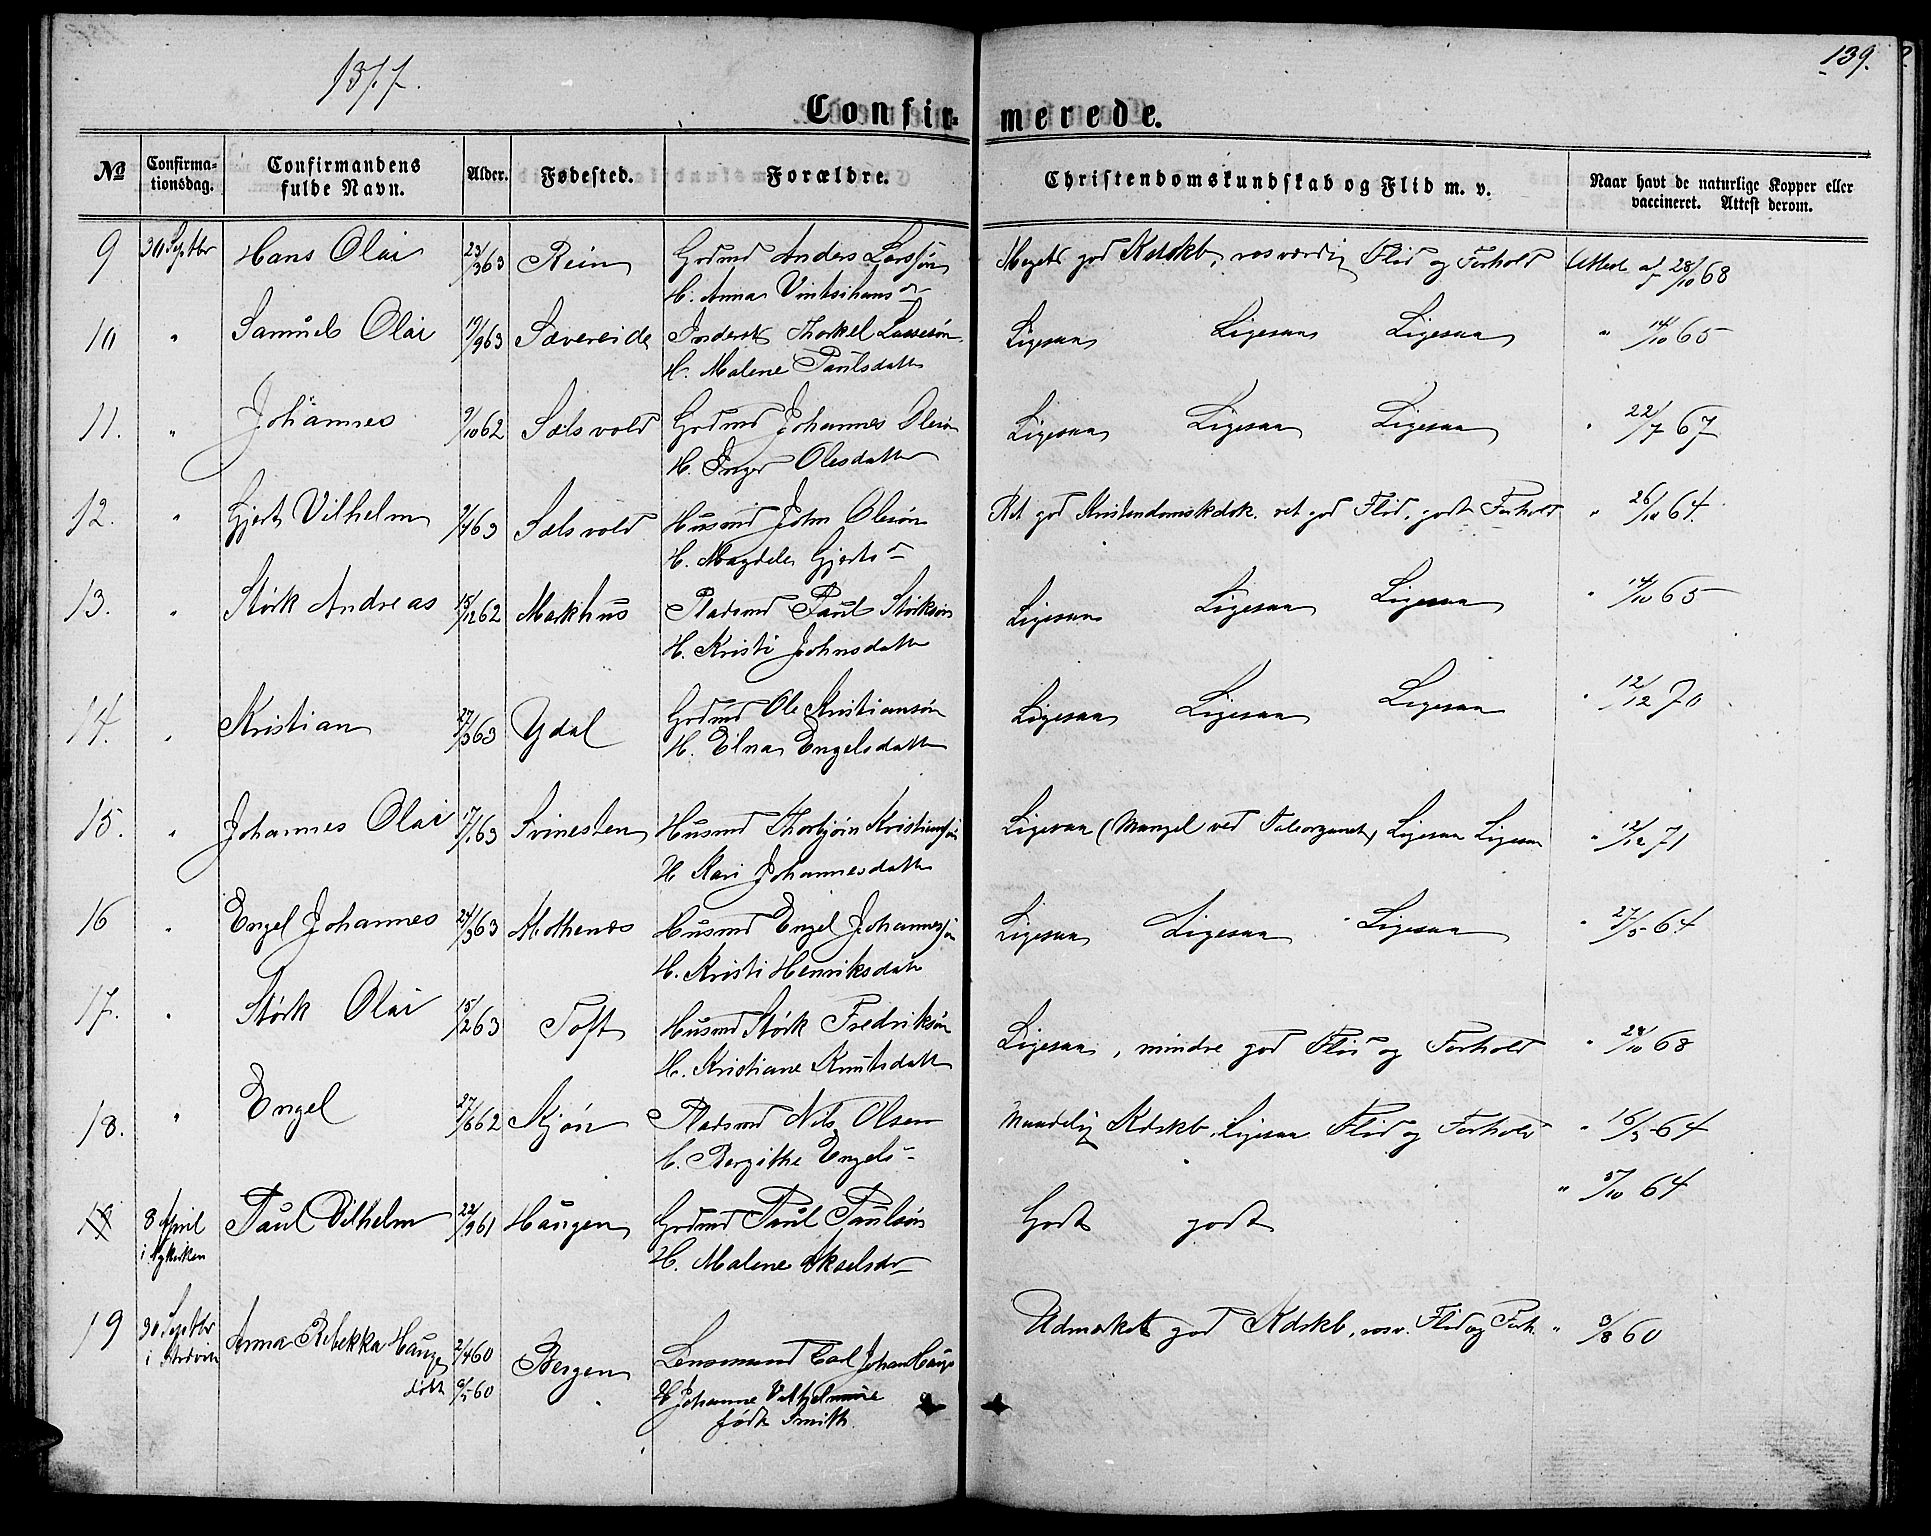 1877.
139.
Confir- merede.
No Confirma-tionsdag. Confirmandens fulde Navn. Alder. Fødested. Forældre. Christendomskundskab og Flid m. v. Naar havt de naturlige Kopper eller vaccineret. Attest derom.
9 30 Septbr Hans Olai 23/3 63 Rein Grdmd Anders Larssøn Meget god Kdskb, rosværdig Flid og Forhold Attest af 28/10 68
H. Anna
10 " Samuel Olai 19/9 63 Sævereide Inderst Thorkel Lassesøn Ligesaa Ligesaa Ligesaa " 14/10 65
H. Malene Paulsdatter
11. " Johannes 9/10 62 Sælsvold Grdmd Johannes Olesøn Ligesaa Ligesaa Ligesaa " 22/7 67
H. Inger Olesdatter
12. " Gjert Vilhelm 9/4 63 Sælsvold Husmd John Olesøn Ret god Kristendomskdsk. ret god Flid, godt Forhold " 26/10 64.
H. Magdele Gjertsd
13. " Størk Andreas 15/12 62 Markhus Pladsmd Paul Størksøn Ligesaa Ligesaa Ligesaa " 14/10 65
H. Kristi Johnsdatter
14. " Kristian 27/3 63 Ydal Grdmd Ole Kristiansøn Ligesaa Ligesaa Ligesaa " 12/12 70
H. Elna Engelsdatter
15. " Johannes Olai 17/1 63 Svinesten Husmd Thorbjørn Kristiansøn Ligesaa (Mangel ved Taleorganet) Ligesaa Ligesaa " 12/12 71
H. Kari Johannesdatter
16 " Engel Johannes 24/3 63 Mothenes Husmd Engel Johannessøn Ligesaa Ligesaa Ligesaa " 27/5 64
H. Kristi Henriksdatter
17. " Størk Olai 15/2 63 Toft Husmd Størk Fredriksøn Ligesaa, mindre god Flid og Forhold " 28/10 68
H. Kristiane Knutsdatter
18. " Engel 27/6 62 Skjøn Pladsmd Nils Olsen Maadelig Kdskb. Ligesaa Flid og Forhold " 16/5 64
H. Bergithe Engelsd
19 8 April Paul Vilhelm 22/9 61 Haugen Grdmd Paul Paulsøn Godt godt " 5/10 64
i Nykirken H. Malene Akselsdr
19 30 Septbr Anna Rebekka Hauge 2/4 60 Bergen Lensmand Carl Johan Hauge Udmærket god Kdskb, rosv. Flid og Forh. " 3/8 60
i døbt 9/5 60 H. Johanne Vilhelmine
født Smith.